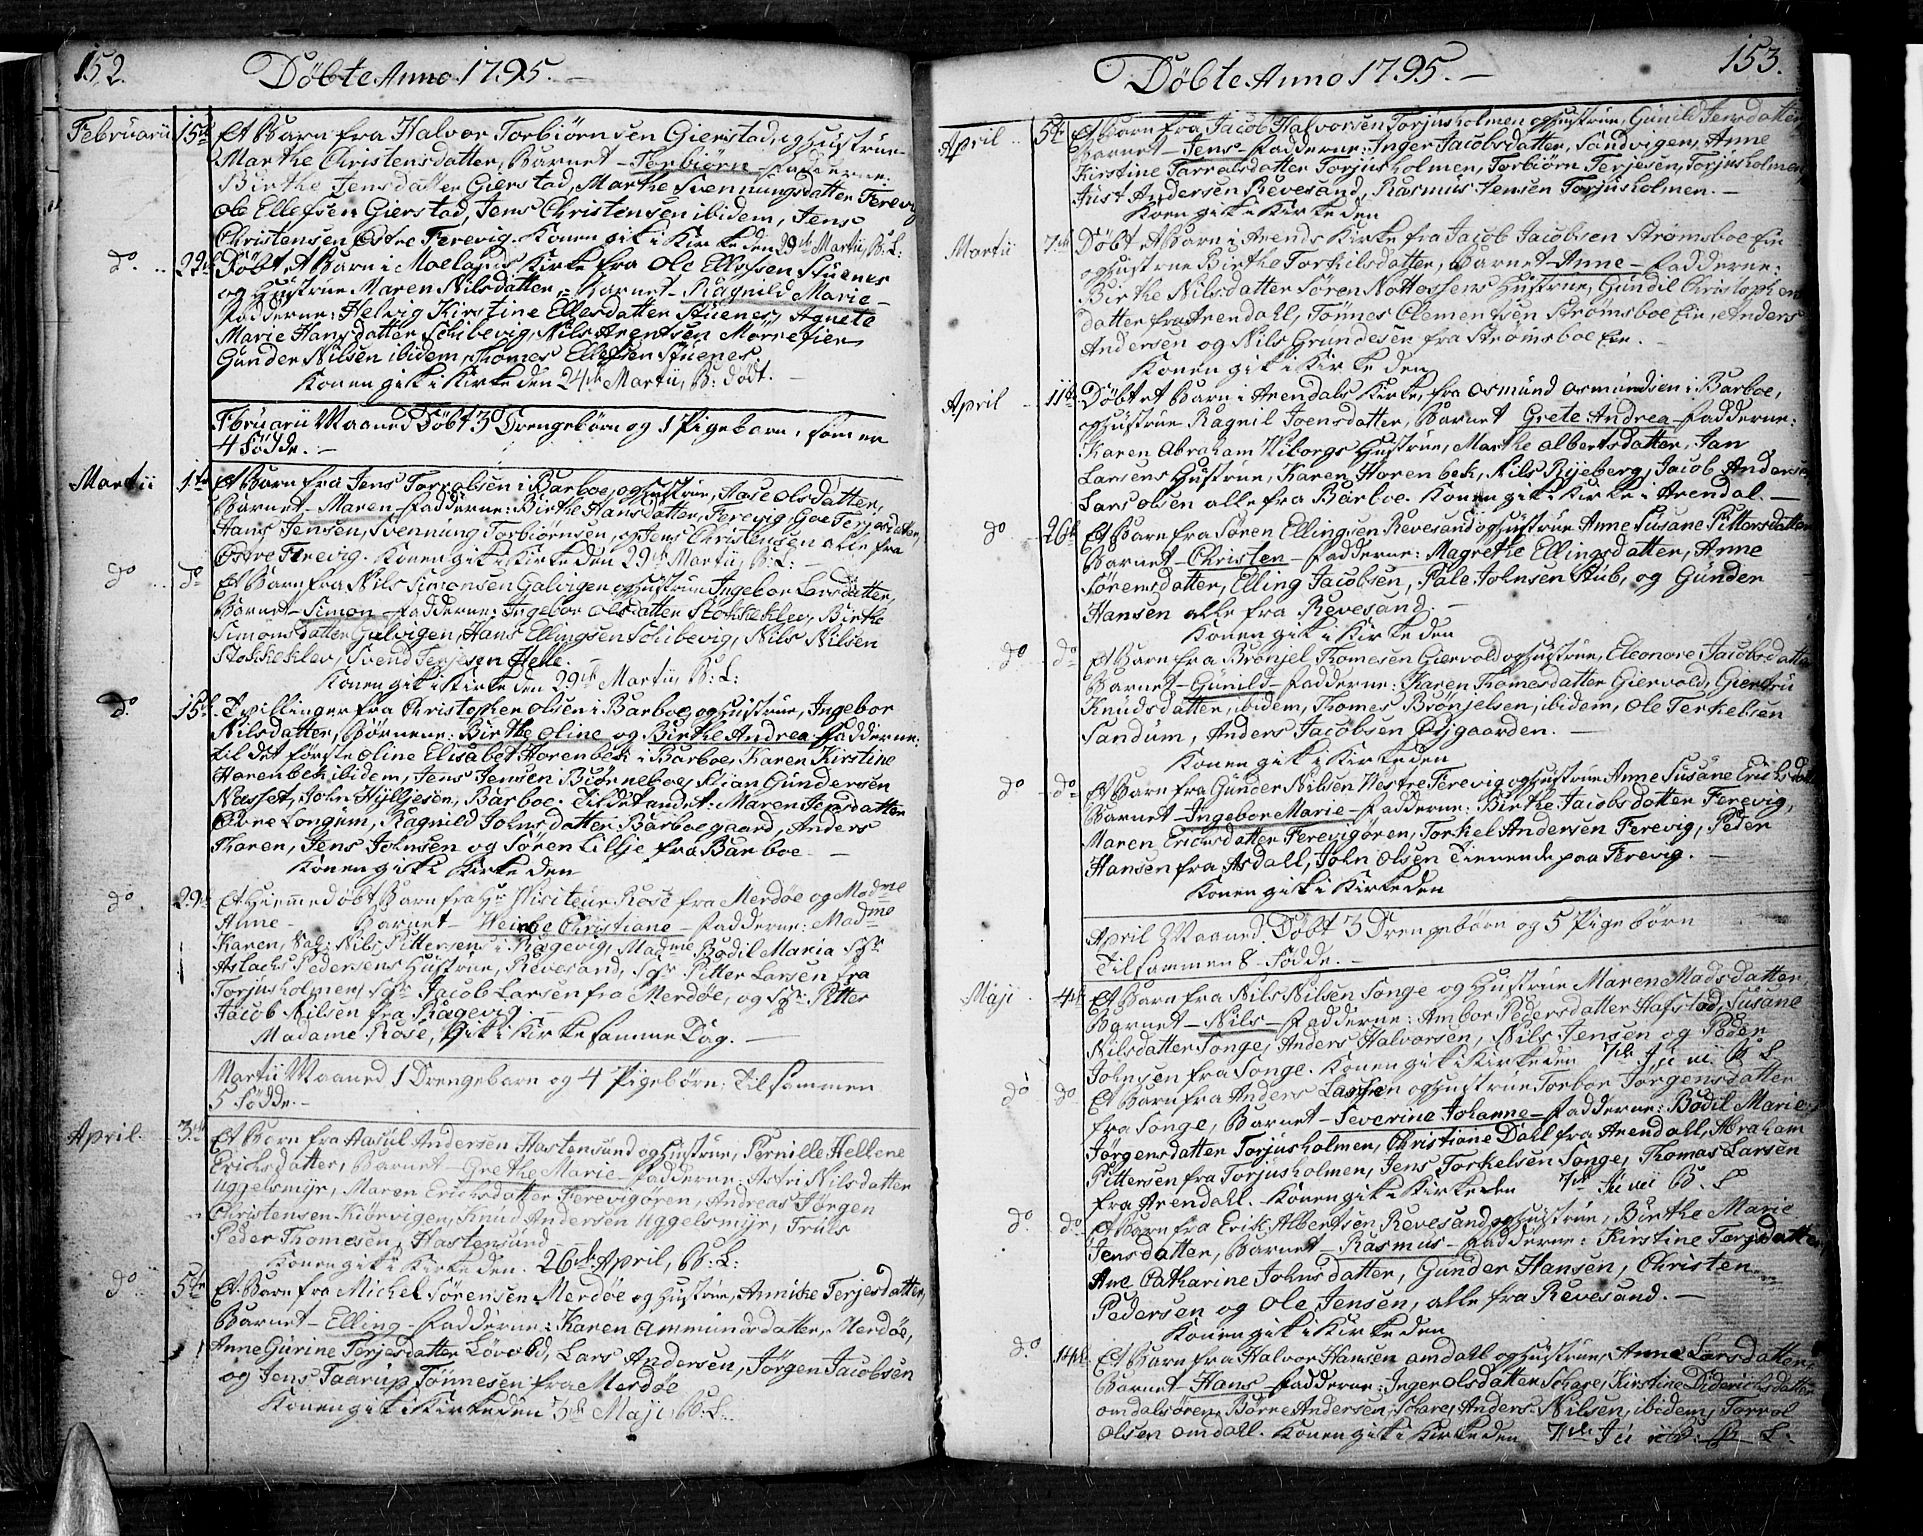 152.
Döbte Anno 1795. –
Februarii 15de Et Barn fra Halvor Torbiörnsen Gierstad, og Hustrue
Marthe Christensdatter, Barnet – Torbiörn – Fadderne:
Birthe Jensdatter Gierstad, Marthe Svenningsdatter Ferevig
Ole Ellefsen Gierstad, Jens Christensen ibidem, Jens
Christensen Östre Ferevig. Konen gik i Kirke den 29de Martii, B: L:
do. 22de Döbt et Barn i Moelands Kirke fra Ole Ellefsen Stuenes
og Hustrue Maren Nilsdatter, Barnet – Ragnild Marie –
Fadderne: Helvig Kirstine Ellefsdatter Stuenes, Agnete
Marie Hansdatter Schibevig, Nils Arentsen Mörrefier
Gunder Nilsen ibidem, Thomes Ellefsen Stuenes.
Konen gik i Kirke den 24de Martii, B: Dödt. –
Februarii Maaned Döbt 3 Drengebörn og 1 Pigebarn, som er
4 Födde. –
Martii 1te Et Barn fra Jens Torralsen i Barboe, og Hustrue, Aase Olsdatter,
Barnet – Maren – Fadderne: Birthe Hansdatter, Ferevig Goe Terjesdatter,
Hans Jensen, Svenning Torbiörnsen, og Jens Christensen alle fra
Östre Ferevig. Konen gik i Kirke den 29de Martii, B: L: –
do do Et Barn fra Nils Simonsen Galvigen og Hustrue Ingebor Larsdatter,
Barnet – Simon – Fadderne: Ingebor Olsdatter Stokkeklev, Birthe
Simonsdatter Galvigen, Hans Ellingsen Schibevig, Nils Nilsen
Stokkeklev, Svend Terjesen Helle.
Konen gik i Kirke den 29de Martii, B: L:
do. 15de Tvillinger fra Christopher Olsen i Barboe, og Hustrue, Ingebor
Nilsdatter, Börnene: Birthe Oline og Birthe Andrea Fadderne:
til det förste Oline Elisabet Horenbek i Barboe, Karen Kirstine
Horenbek ibidem, Jens Jensen Biörneboe, Stian Gundersen
Næsset, John Hylljesen, Barboe. Til det andet: Maren Jensdatter
Övre Longum, Ragnild Johnsdatter Barboegaard, Anders
Tharen, Jens Johnsen og Sören Lillje fra Barboe –
Konen gik i Kirke den
do 29de Et Hiemmedöbt Barn fra Hr Visiteur Rose fra Merdöe og Madme
Anne – Barnet – Weinche Christiane – Fadderne: Madme
Karen, Sal: Nils Pittersens i Ragevig, Madme Bodil Maria Sgr
Aslachs Pedersens Hustrue, Revesand, Sgr Pitter Larsen fra
Torjusholmen, Sgr Jacob Larsen fra Merdöe, og Sgr Pitter
Jacob Nilsen fra Ragevig. –
Madame Rose, Gik i Kirke samme Dag. –
Martii Maaned 1 Drengebarn og 4 Pigebörn, Tilsammen
5 Födde. –
April 3de Et Barn fra Aasul Andersen Hastensund og Hustrue, Pernille Hellene
Erichsdatter, Barnet – Grethe Marie – Fadderne: Astri Nilsdatter
Uggelsmyr, Maren Erichsdatter Ferevigören, Andreas Jörgen
Christensen Kiörvigen, Knud Andersen Uggelsmyr, Truls
Peder Thomesen, Hastensund –
Konen gik i Kirke den. 26de April, B: L:
do 5te Et Barn fra Michel Sörensen Merdöe og Hustrue, Annike Terjesdatter,
Barnet – Elling – Fadderne: Karen Ammundsdatter, Merdöe,
Anne Gurine Terjesdatter Lövold, Lars Andersen, Jörgen Jacobsen
og Jens Taarup Tönnesen fra Merdöe
Konen gik i Kirke den 3de Maji, B: L:
153.
Döbte Anno 1795. –
April 5te Et Barn fra Jacob Halvorsen Torjusholmen og Hustrue, Gunild Jensdatter,
Barnet – Jens – Fadderne: Inger Jacobsdatter, Sandvigen, Anne
Kirstine Tarralsdatter Torjusholmen, Torbiörn Terjesen, Torjusholmen,
Just Andersen Revesand, Rasmus Jensen Torjusholmen. –
Konen gik i Kirke den
Martii 7de Döbt et Barn i Arends Kirke fra Jacob Jacobsen Strömsboe Eie
og Hustrue Birthe Torkilsdatter, Barnet – Anne – Fadderne:
Birthe Nilsdatter Sören Nottossens Hustrue, Gundil Christophers
datter fra Arendahl, Tönnes Clementsen Strömsboe Eie, Anders
Andersen og Nils Grundesen fra Strömsboe Eie. –
Konen gik i Kirke den
April 11te Döbt et Barn i Arendals Kirke, fra Osmund Osmundsen i Barboe,
og Hustrue Ragnil Joensdatter, Barnet Grete Andrea – Fadderne:
Karen Abraham Wiborgs Hustrue, Marthe Albertsdatter, Jan
Larsens Hustrue, Karen Horenbek, Nils Ryeberg, Jacob Andersen
Lars Olsen alle fra Barboe. Konen gik i Kirke i Arendal. –
do 26de Et Barn fra Sören Ellingsen Revesand og Hustrue Anne Susane Pittersdatter
Barnet – Christen – Fadderne: Magrethe Ellingsdatter, Anne
Sörensdatter, Elling Jacobsen, Pale Johnsen Stub, og Gunder
Hansen alle fra Revesand. –
Konen gik i Kirke den
do do Et Barn fra Brönjel Thomesen Giervold og Hustrue, Eleonore Jacobsdatter
Barnet – Gunild – Fadderne: Karen Thomesdatter Giervold, Giertru
Knudsdatter, ibidem, Thomes Brönjelsen, ibidem, Ole Terkelsen
Sandum, Anders Jacobsen Öygaarden. –
Konen gik i Kirke den
do do Et Barn fra Gunder Nilsen Westre Ferevig og Hustrue Anne Susane Erichsdatter
Barnet – Ingebor Marie – Fadderne: Birthe Jacobsdatter Ferevig,
Maren Erichsdatter Ferevigören, Torkel Andersen Ferevig, Peder
Hansen fra Asdall, John Olsen Tienende paa Ferevig. –
Konen gik i Kirke den
April Maaned Döbt 3 Drengebörn og 5 Pigebörn
Tilsammen 8 Födde. –
Maji 4de Et Barn fra Nils Nilsen Songe og Hustrue Maren Madsdatter,
Barnet – Nils – Fadderne: Ambor Pedersdatter Hafstad, Susane
Nilsdatter Songe, Anders Halvorsen, Nils Jensen og Peder
Johnsen fra Songe. Konen gik i Kirke den 7de Juni B: L
do do Et Barn fra Anders Larsen og Hustrue Torbor Jörgensdatter
fra Songe, Barnet – Severine Johanne – Fadderne: Bodil Marie
Jörgensdatter Torjusholmen, Christiane Dahl fra Arendall, Abraham
Pittersen fra Torjusholmen, Jens Torkelsen Songe, Thomas Larsen
fra Arendahl. – Konen gik i Kirke den 7de Juni B. L
do. do Et Barn fra Erik Albertsen Revesand og Hustrue, Birthe Marie
Jensdatter, Barnet – Rasmus – Fadderne: Kirstine Terjesdatter,
Ane Catharine Johnsdatter, Gunder Hansen, Christen
Pedersen og Ole Jensen, alle fra Revesand. –
Konen gik i Kirke den
do. 14de Et Barn fra Halvor Hansen Omdahl og Hustrue, Anne Larsdatter,
Barnet – Hans – Fadderne: Inger Olsdatter Schare, Kirstine Diderichsdatter
Omdalsören, Börre Andersen, Schare, Anders Nilsen, ibidem, Torral
Olsen Omdahl. Konen gik i Kirke den 7de Juni B: L.